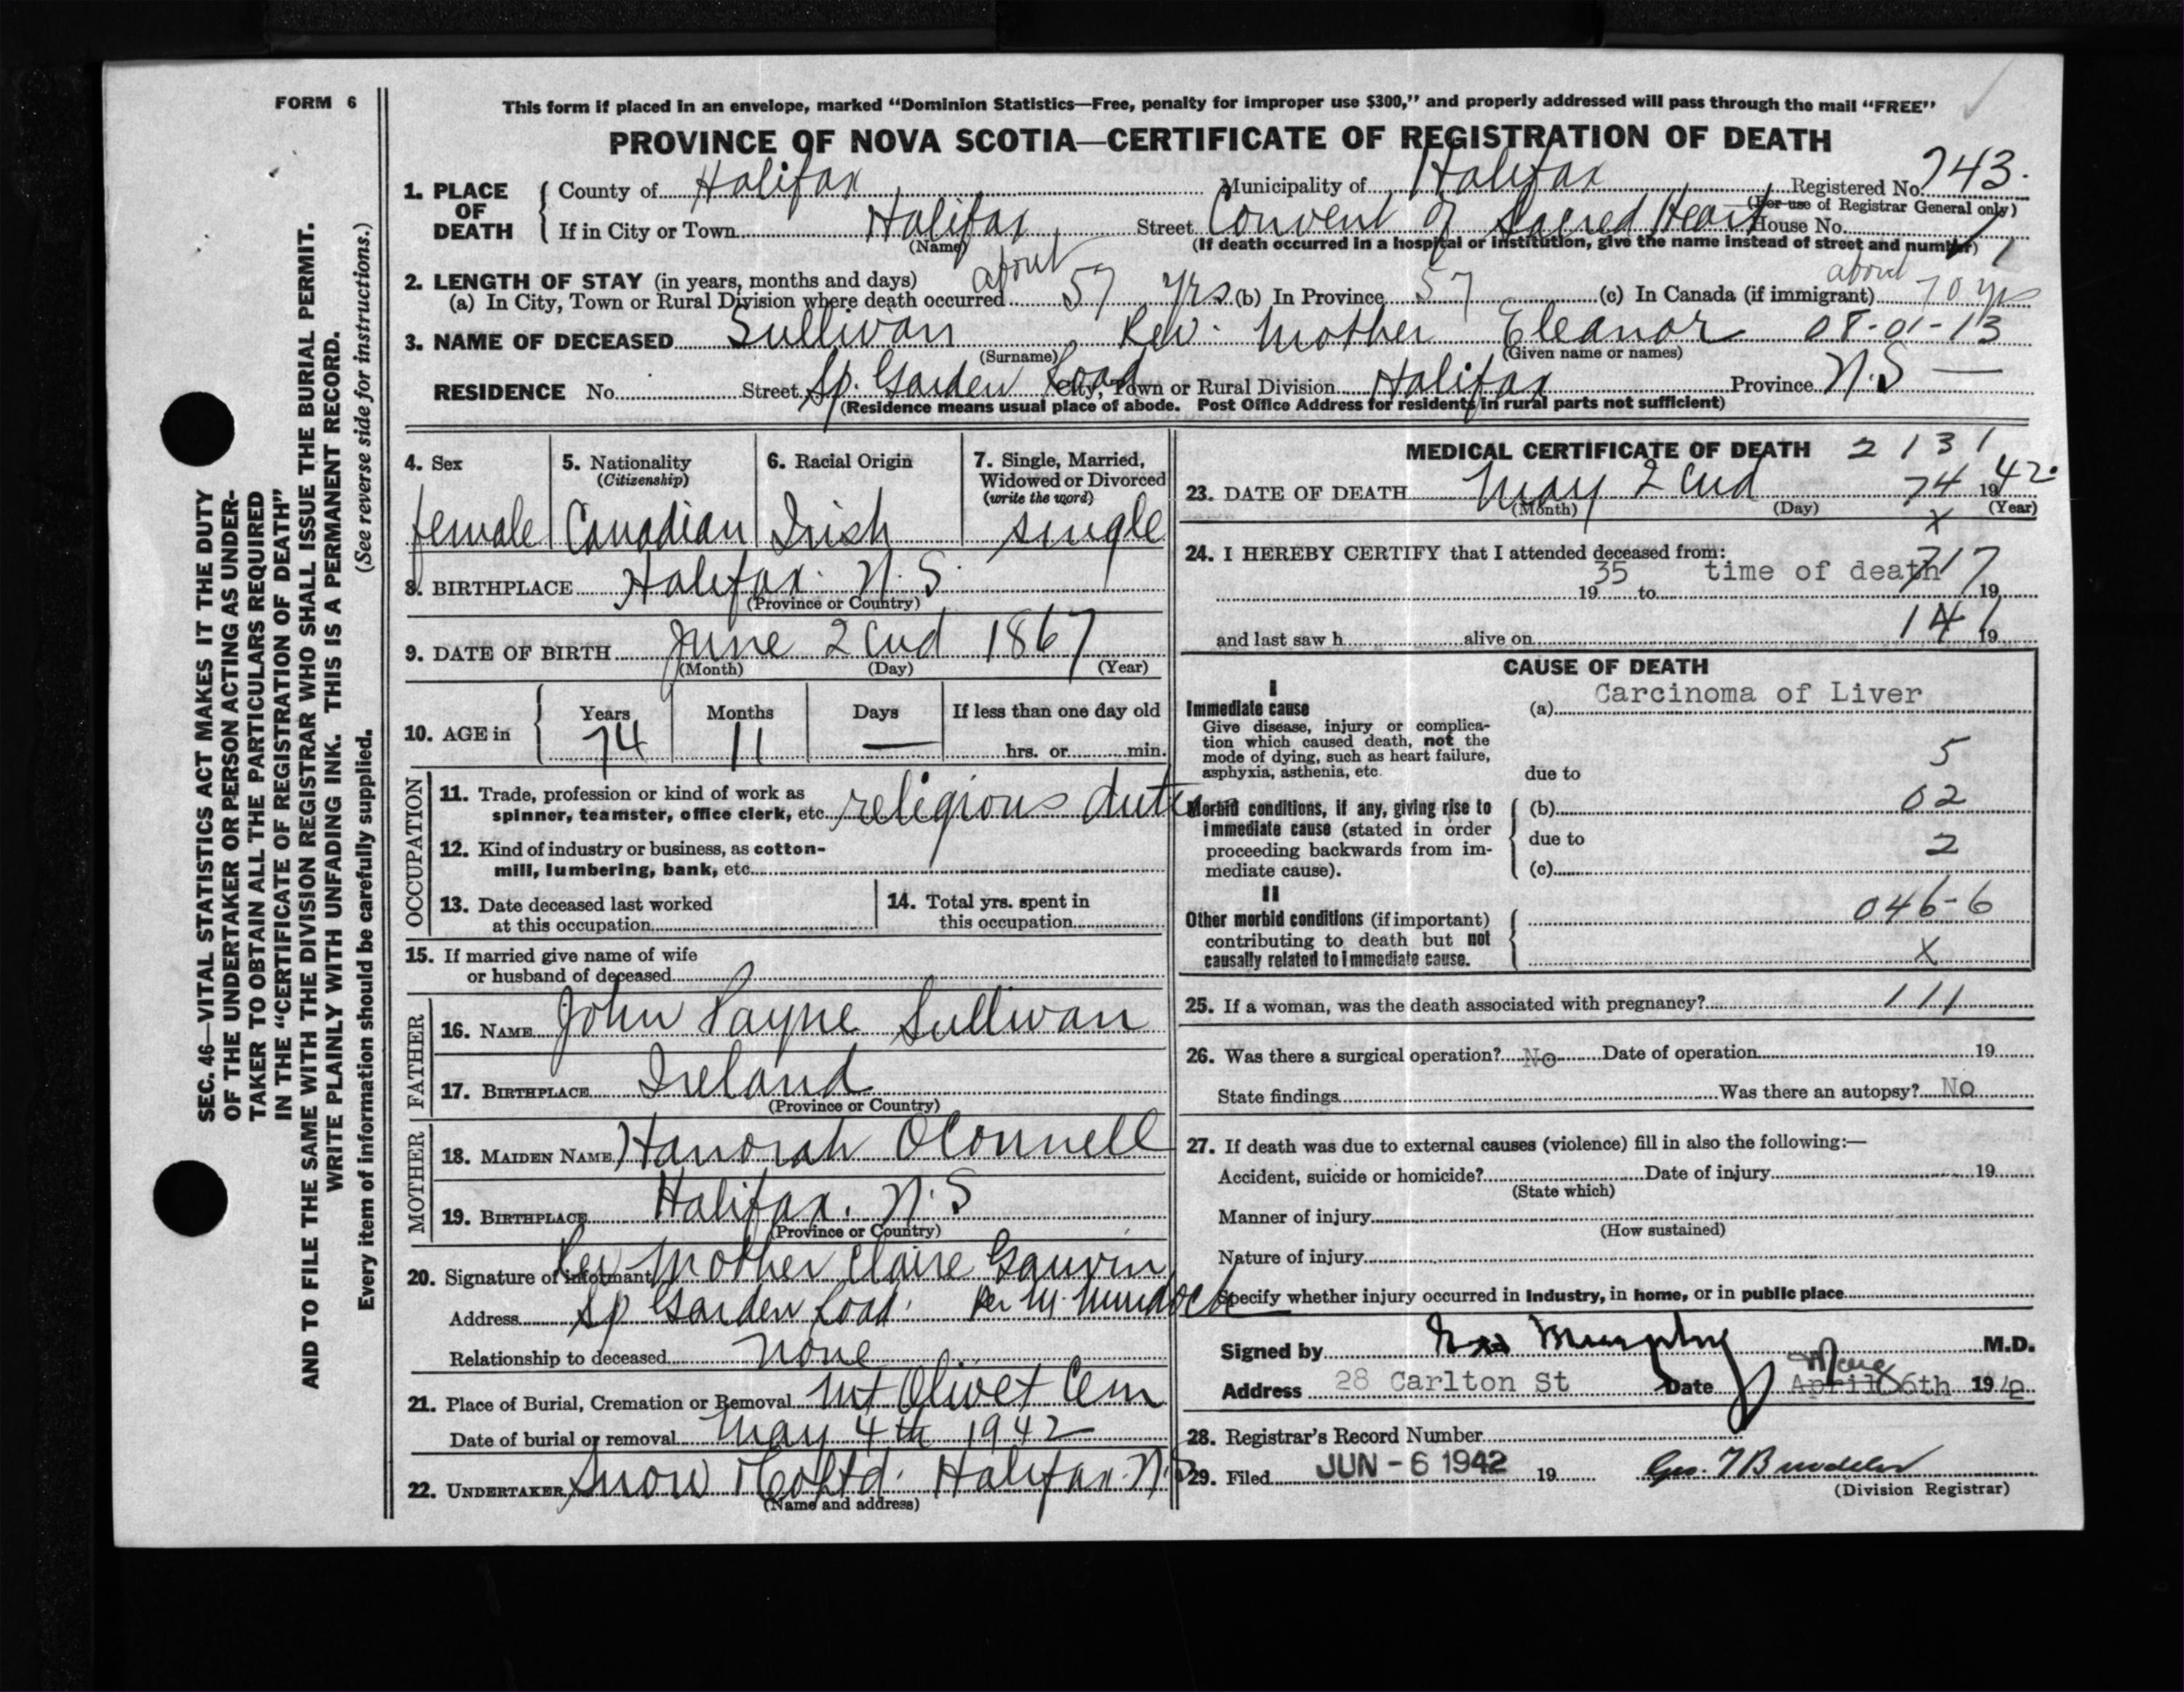 FORM 6
SEC. 46—VITAL STATISTICS ACT MAKES IT THE DUTY
OF THE UNDERTAKER OR PERSON ACTING AS UNDER-
TAKER TO OBTAIN ALL THE PARTICULARS REQUIRED
IN THE “CERTIFICATE OF REGISTRATION OF DEATH”
AND TO FILE THE SAME WITH THE DIVISION REGISTRAR WHO SHALL ISSUE THE BURIAL PERMIT.
WRITE PLAINLY WITH UNFADING INK. THIS IS A PERMANENT RECORD.
Every item of information should be carefully supplied. (See reverse side for instructions.)
This form if placed in an envelope, marked “Dominion Statistics—Free, penalty for improper use $300,” and properly addressed will pass through the mail “FREE”
PROVINCE OF NOVA SCOTIA—CERTIFICATE OF REGISTRATION OF DEATH
1. PLACE OF DEATH County of Halifax Municipality of Halifax Registered No. 743.
(For use of Registrar General only)
If in City or Town Halifax Street Convent of Sacred Heart House No.
(Name) (If death occurred in a hospital or institution, give the name instead of street and number)
2. LENGTH OF STAY (in years, months and days)
(a) In City, Town or Rural Division where death occurred about 57 yrs. (b) In Province 57 (c) In Canada (if immigrant) about 70 yrs
3. NAME OF DECEASED Sullivan Rev. Mother Eleanor 08-01-13
(Surname) (Given name or names)
RESIDENCE No. Street Sp. Garden Road City, Town or Rural Division Halifax Province N.S —
(Residence means usual place of abode. Post Office Address for residents in rural parts not sufficient)
4. Sex 5. Nationality 6. Racial Origin 7. Single, Married,
(Citizenship) Widowed or Divorced
(write the word)
female Canadian Irish single
8. BIRTHPLACE Halifax. N.S.
(Province or Country)
9. DATE OF BIRTH June 2nd 1867
(Month) (Day) (Year)
10. AGE in Years Months Days If less than one day old
74 11 — hrs. or min.
OCCUPATION
11. Trade, profession or kind of work as
spinner, teamster, office clerk, etc. religious duties
12. Kind of industry or business, as cotton-
mill, lumbering, bank, etc.
13. Date deceased last worked
at this occupation
14. Total yrs. spent in
this occupation
15. If married give name of wife
or husband of deceased
FATHER
16. NAME John Payne Sullivan
17. BIRTHPLACE Ireland
(Province or Country)
MOTHER
18. MAIDEN NAME Hanorah OConnell
19. BIRTHPLACE Halifax. N.S
(Province or Country)
20. Signature of informant Rev Mother Claire Gauvin
Address Sp Garden Road. Per M. Murdoch
Relationship to deceased none
21. Place of Burial, Cremation or Removal Mt Olivet Cem
Date of burial or removal May 4th 1942
22. UNDERTAKER Snow & Co Ltd. Halifax. N.S
(Name and address)
MEDICAL CERTIFICATE OF DEATH 2 1 3 1
23. DATE OF DEATH May 2nd 74 1942.
(Month) (Day) (Year)
x
24. I HEREBY CERTIFY that I attended deceased from:
1935 to time of death 19
717
and last saw h alive on 19
141
CAUSE OF DEATH
I
Immediate cause
Give disease, injury or complica-
tion which caused death, not the
mode of dying, such as heart failure,
asphyxia, asthenia, etc.
(a) Carcinoma of Liver
5
due to
Morbid conditions, if any, giving rise to
immediate cause (stated in order
proceeding backwards from im-
mediate cause).
(b) 02
due to 2
(c)
II
Other morbid conditions (if important)
contributing to death but not
causally related to immediate cause.
046-6
X
25. If a woman, was the death associated with pregnancy? 111
26. Was there a surgical operation? No Date of operation 19
State findings Was there an autopsy? No
27. If death was due to external causes (violence) fill in also the following:—
Accident, suicide or homicide? Date of injury 19
(State which)
Manner of injury
(How sustained)
Nature of injury
Specify whether injury occurred in industry, in home, or in public place
Signed by Murphy M.D.
Address 28 Carlton St Date April May 6th 1942
28. Registrar's Record Number
29. Filed JUN - 6 1942 19
(Division Registrar)